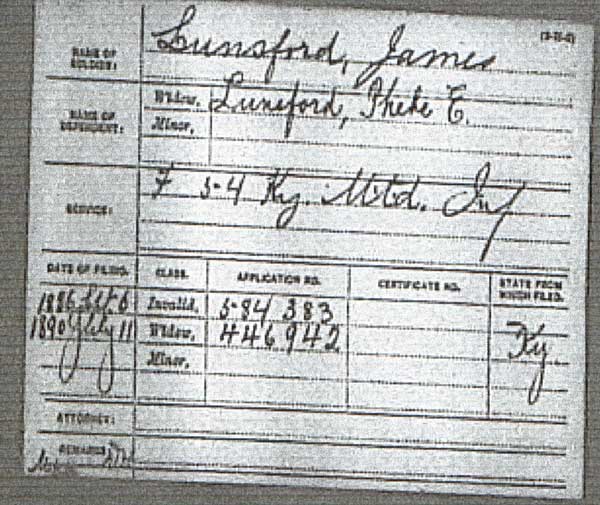 (3-35-0)
NAME OF SOLDIER: Lunsford, James
NAME OF DEPENDENT: Widow, Lunsford, Phebe E.
Minor,
SERVICE: F 54 Ky. Mtd. Inf
DATE OF FILING. CLASS. APPLICATION NO. CERTIFICATE NO. STATE FROM WHICH FILED.
1886 Oct 6 Invalid, 584 383
1890 July 11 Widow, 446942 Ky
Minor,
ATTORNEY:
REMARKS: